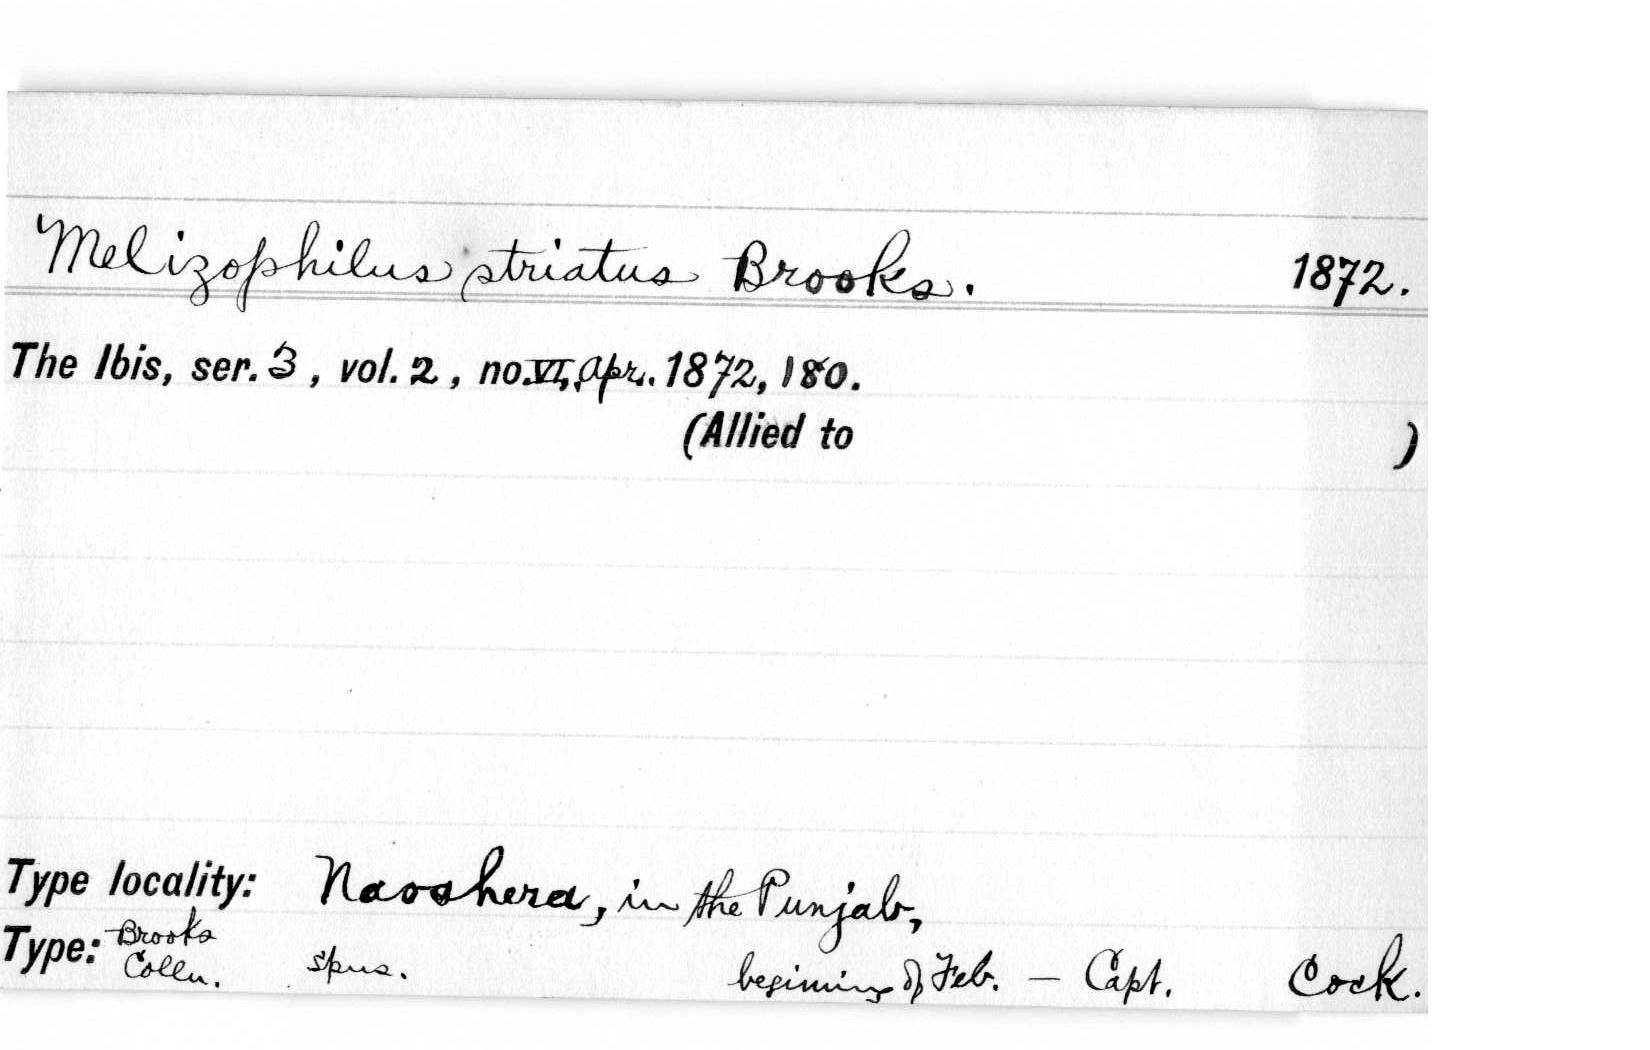 Melizophilus striatus Brooks. 1872.
The Ibis, ser. 3, vol. 2, no. VI, Apr. 1872, 180.
(Allied to )
Type locality: Naoshera, in the Punjab,
Type: Brooks Colln. spns. begining of Feb. — Capt. Cock.